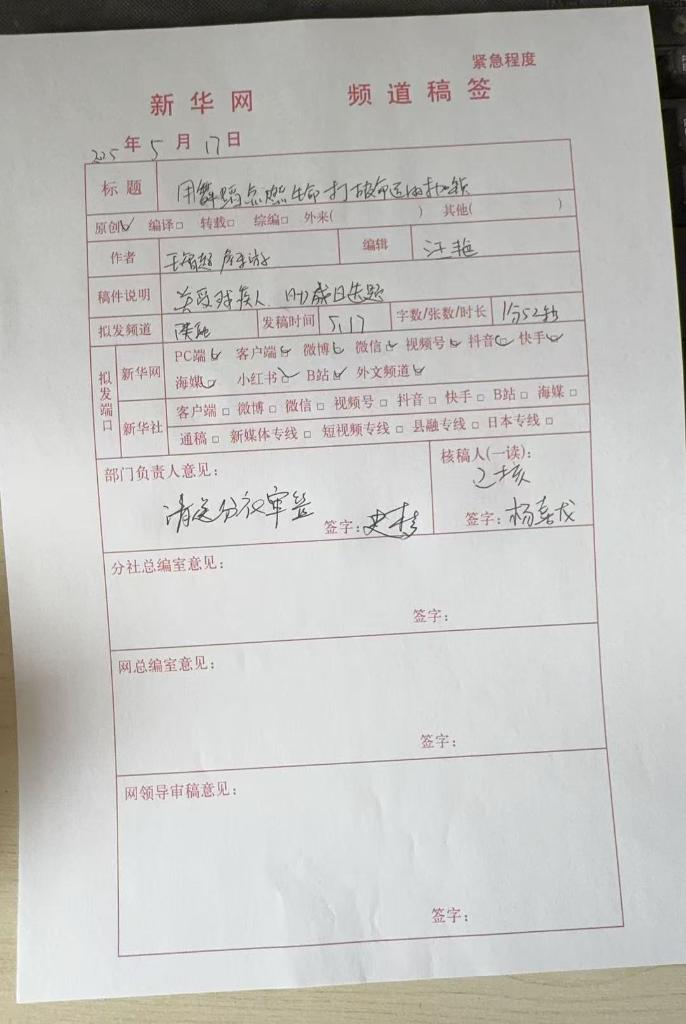 紧急程度
新华网 频道稿签
2025年5月17日
标题 用舞蹈点燃生命 打破命运的枷锁
原创☑ 编译□ 转载□ 综编□ 外来( ) 其他( )
作者 编辑 汪艳
稿件说明 关爱残疾人 助残日失题
拟发频道 陕融 发稿时间 5.17 字数/张数/时长 1分52秒
拟发端口
新华网 PC端☑ 客户端☑ 微博☑ 微信☑ 视频号☑ 抖音☑ 快手☑
海媒☑ 小红书☑ B站☑ 外文频道☑
新华社 客户端□ 微博□ 微信□ 视频号□ 抖音□ 快手□ B站□ 海媒□
通稿□ 新媒体专线□ 短视频专线□ 县融专线□ 日本专线□
部门负责人意见: 核稿人(一读):
请送分社审签 已核
签字: 史 签字: 杨喜龙
分社总编室意见:
签字:
网总编室意见:
签字:
网领导审稿意见:
签字: